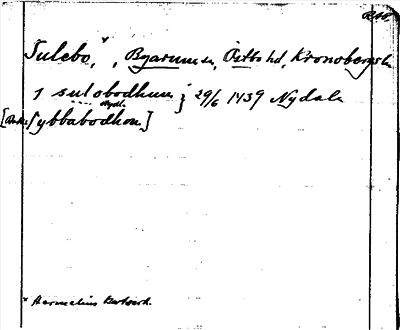 RAp.
Sulebo,ˣ, Byarums sn, Östbo hd, Kronobergs ln
j sulobodhum j 29/6 1439 Nydala
[Avskr. Sybbabodhom.]
x Hermelins kartverk.